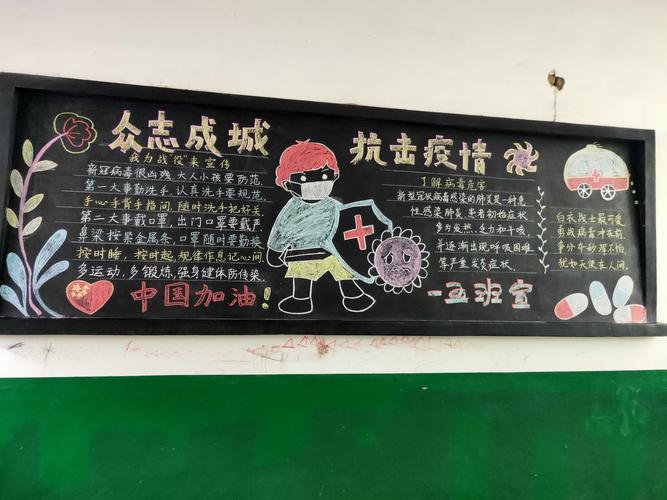 众志成城
抗击疫情
我为战"役"来宣传
新冠病毒很凶残,大人小孩要防范,
第一大事勤洗手,认真洗手要规范,
手心手背手指间,随时洗手把好关
第二大事戴口罩,出门口罩要戴严
鼻梁按紧金属条,口罩随时要勤换
按时睡、按时起,规律作息记心间
多运动,多锻炼,强身健体防传染。
中国加油!
了解病毒危害
新型冠状病毒感染的肺炎是一种急
性感染肺炎,患者初始症状
多为发热、乏力和干咳,
并逐渐出现呼吸困难
等严重症状。
一五班宣
白衣战士最可爱
勇战病毒冲在前
多分奇妙浑不怕,
犹如天使在人间。